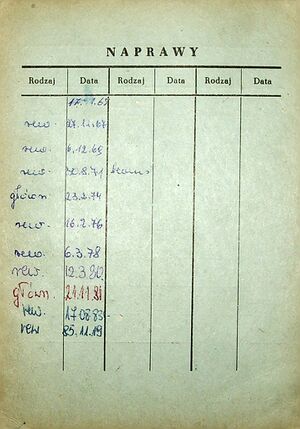 NAPRAWY
Rodzaj Data Rodzaj Data Rodzaj Data
17.1.65
rew. 27.12.67
rew. 6.12.69
rew. 30.8.71
główn 23.2.74
rew. 16.2.76
rew. 6.3.78
rew. 12.3.80.
główn. 21.11.81
rew. 17 08 83
rew 85.11.19